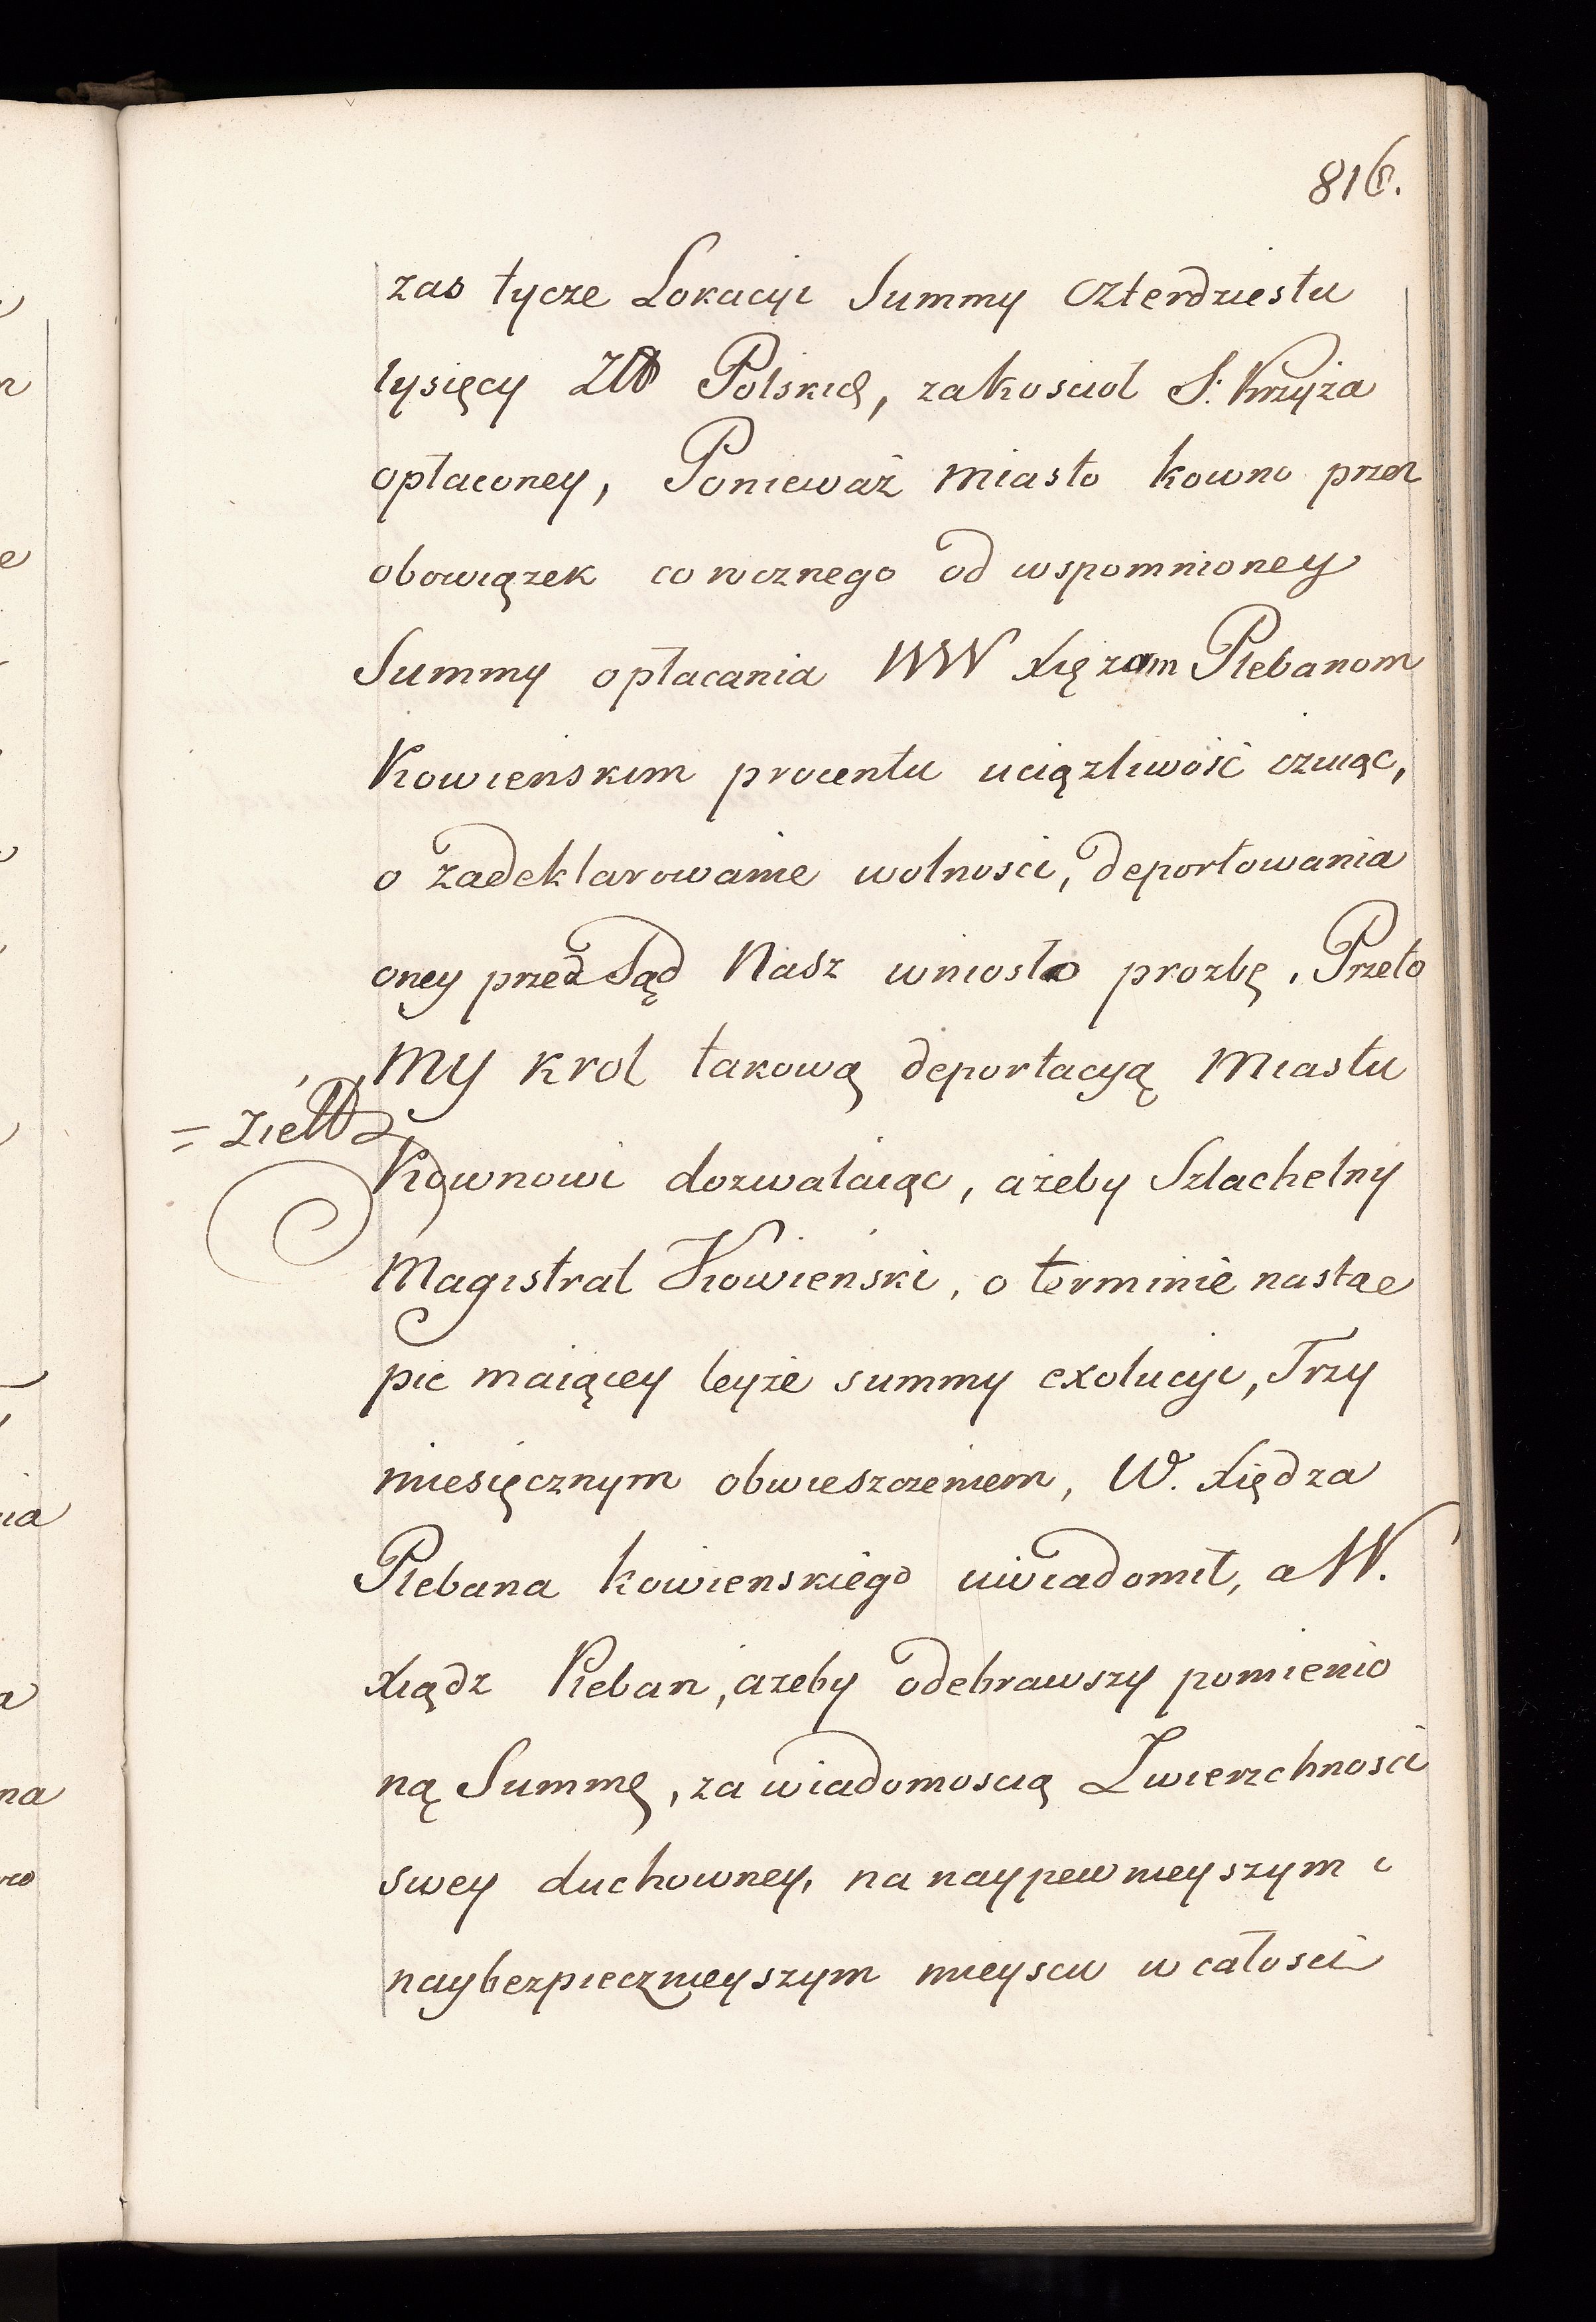 816.
zas tycze Lokacyi Summy czterdziestu
tysięcy Złł Polskich, za kosciol S: Krzyża
opłaconey, Ponieważ Miasto kowno przez
obowiązek corocznego od wspomnioney
Summy opłacania WW Xięzom Plebanom
Kowienskim procentu uciązliwość czuiąc,
o zadeklarowanie wolnosci, deportowania
oney przed Sąd Nasz wniosło prozbę. Przeto
My krol takową deportacyą Miastu
Kownowi dozwalaiąc, ażeby Szlachetny
Magistrat Kowieński, o terminie nastąe
pic maiącey teyże summy exolucyi, Trzy
miesięcznym obwieszczeniem, W. Xiędza
Plebana kowienskiego uwiadomił, a W.
Xiądz Pleban, ażeby odebrawszy pomienio
ną Summę, za wiadomoscią Zwierzchnosci
swey duchowney, na naypewnieyszym i
naybezpiecznieyszym mieyscu w całosci